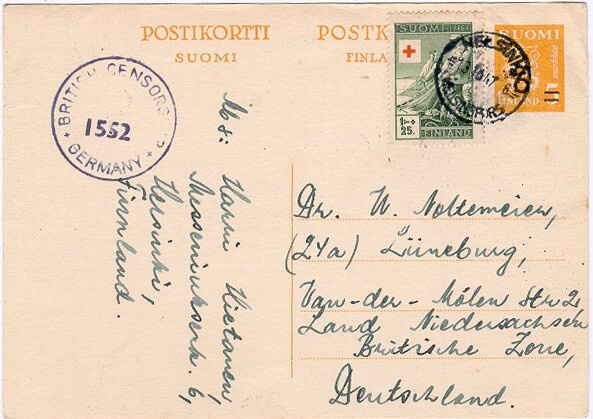 POSTIKORTTI
SUOMI
POSTK
FINLA
BRITISH CENSORS
1552
GERMANY
SUOMI 1946
1 + 25
FINLAND
HELSINKI
HELSINGFORS
SUOMI
FINLAND
Ms: Harri Kietanen,
6,
Helsinki,
Finnland.
Dr. W. Noltemeier,
(24a) Lüneburg,
Van-der-Mölen Str 2
Land Niedersachsen
Britische Zone,
Deutschland.